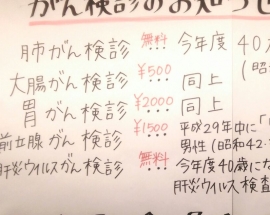 がん検診のお知らせ
肺がん検診 無料 今年度 40
大腸がん検診 ¥500 同上 (昭
胃がん検診 ¥2000 同上
前立腺がん検診 ¥1500 平成29年中に「
男性(昭和42.
肝炎ウイルスがん検診 無料 今年度40歳にな
肝炎ウイルス検査